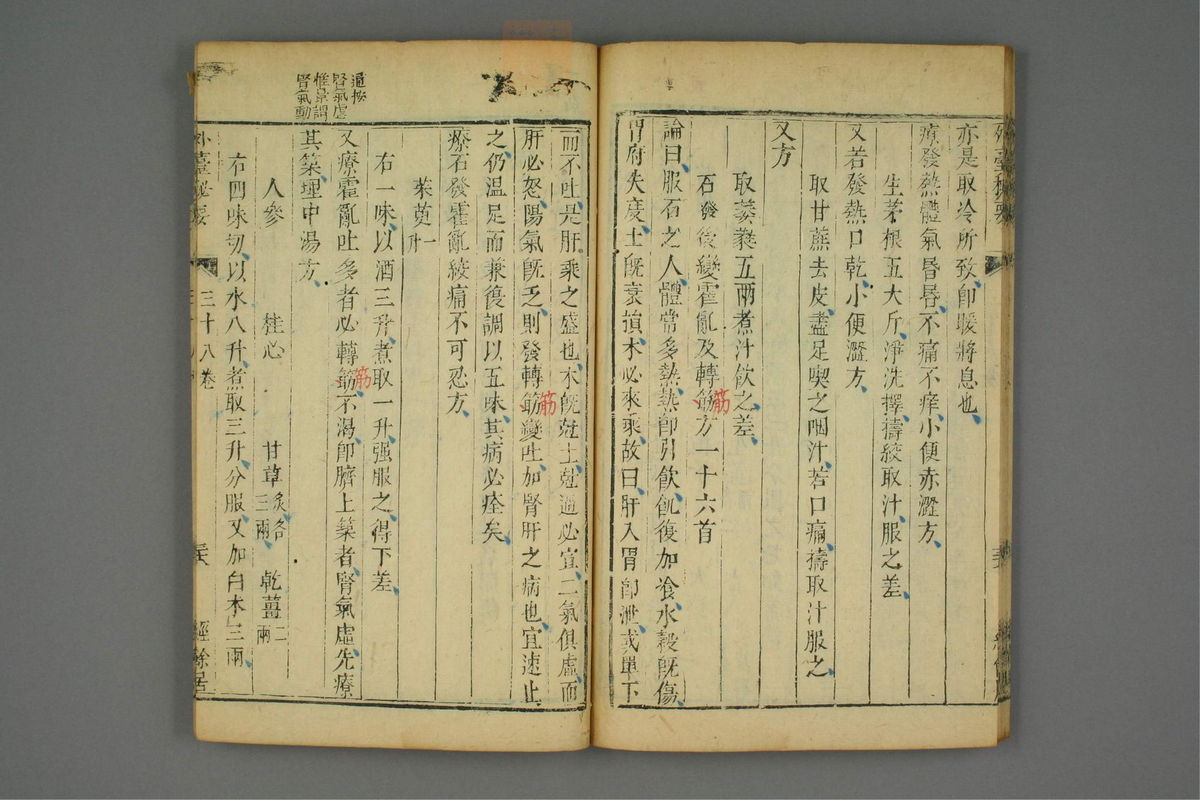 亦是取冷所致即暖將息也
療發熱體氣昏昏不痛不痒小便赤澀方
生茅根五大斤淨洗擇擣絞取汁服之差
又若發熱口乾小便澀方
取甘蔗去皮盡足喫之咽汁若口痛擣取汁服之
又方
取葵蕤五兩煮汁飲之差
石發後變霍亂及轉筋方一十六首
筋
論曰服石之人體常多熱熱即引飲飢復加飡水穀既傷
胃府失度土既衰損木必來乘故曰肝入胃即泄或單下
而不吐是肝乘之盛也木既尅土尅過必宜二氣俱虛而
肝必怒陽氣既乏則發轉筋變吐加腎肝之病也宜速止
筋
之仍溫足而兼復調以五味其病必痊矣
療石發霍亂絞痛不可忍方
茱萸一升
右一味以酒三升煮取一升强服之得下差
又療霍亂吐多者必轉筋不渴即臍上築者腎氣虛先療
筋
其築理中湯方
通按
腎氣虛
惟景謂
腎氣動
人參 桂心 甘草炙各三兩 乾薑二兩
右四味切以水八升煮取三升分服又加白术三兩
外臺秘要
三十八卷
經餘居